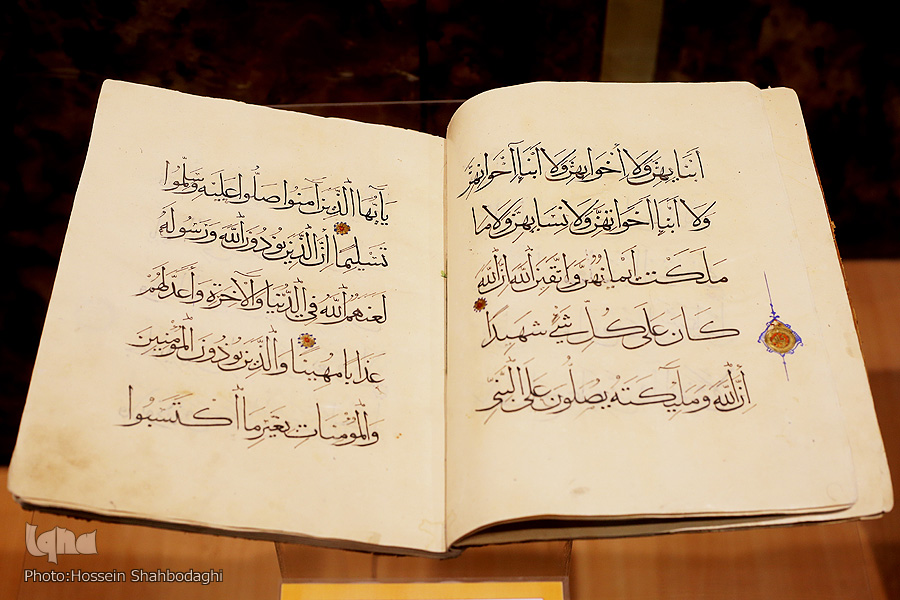 أَبنايِهِنَّ وَلا أَخوانِهِنَّ وَلا أَبناءِ أَخوانِهِنَّ
وَلا أَبناءِ أَخواتِهِنَّ وَلا نِسايِهِنَّ وَلا ما
مَلَكَت أَيمانُهُنَّ وَاتَّقينَ اللَّهَ إِنَّ اللَّهَ
كانَ عَلى كُلِّ شَيءٍ شَهيدًا
إِنَّ اللَّهَ وَمَليِكَتَهُ يُصَلّونَ عَلَى النَّبِيِّ
يأَيُّهَا الَّذينَ آمَنوا صَلّوا عَلَيهِ وَسَلِّموا
تَسليمًا إِنَّ الَّذينَ يُؤذونَ اللَّهَ وَرَسولَهُ
لَعَنَهُمُ اللَّهُ فِي الدُّنيا وَالآخِرَةِ وَأَعَدَّ لَهُم
عَذابًا مُهينًا وَالَّذينَ يُؤذونَ المُؤمِنينَ
وَالمُؤمِناتِ بِغَيرِ مَا اكتَسَبوا
Iqna
Photo:Hossein Shahbodaghi